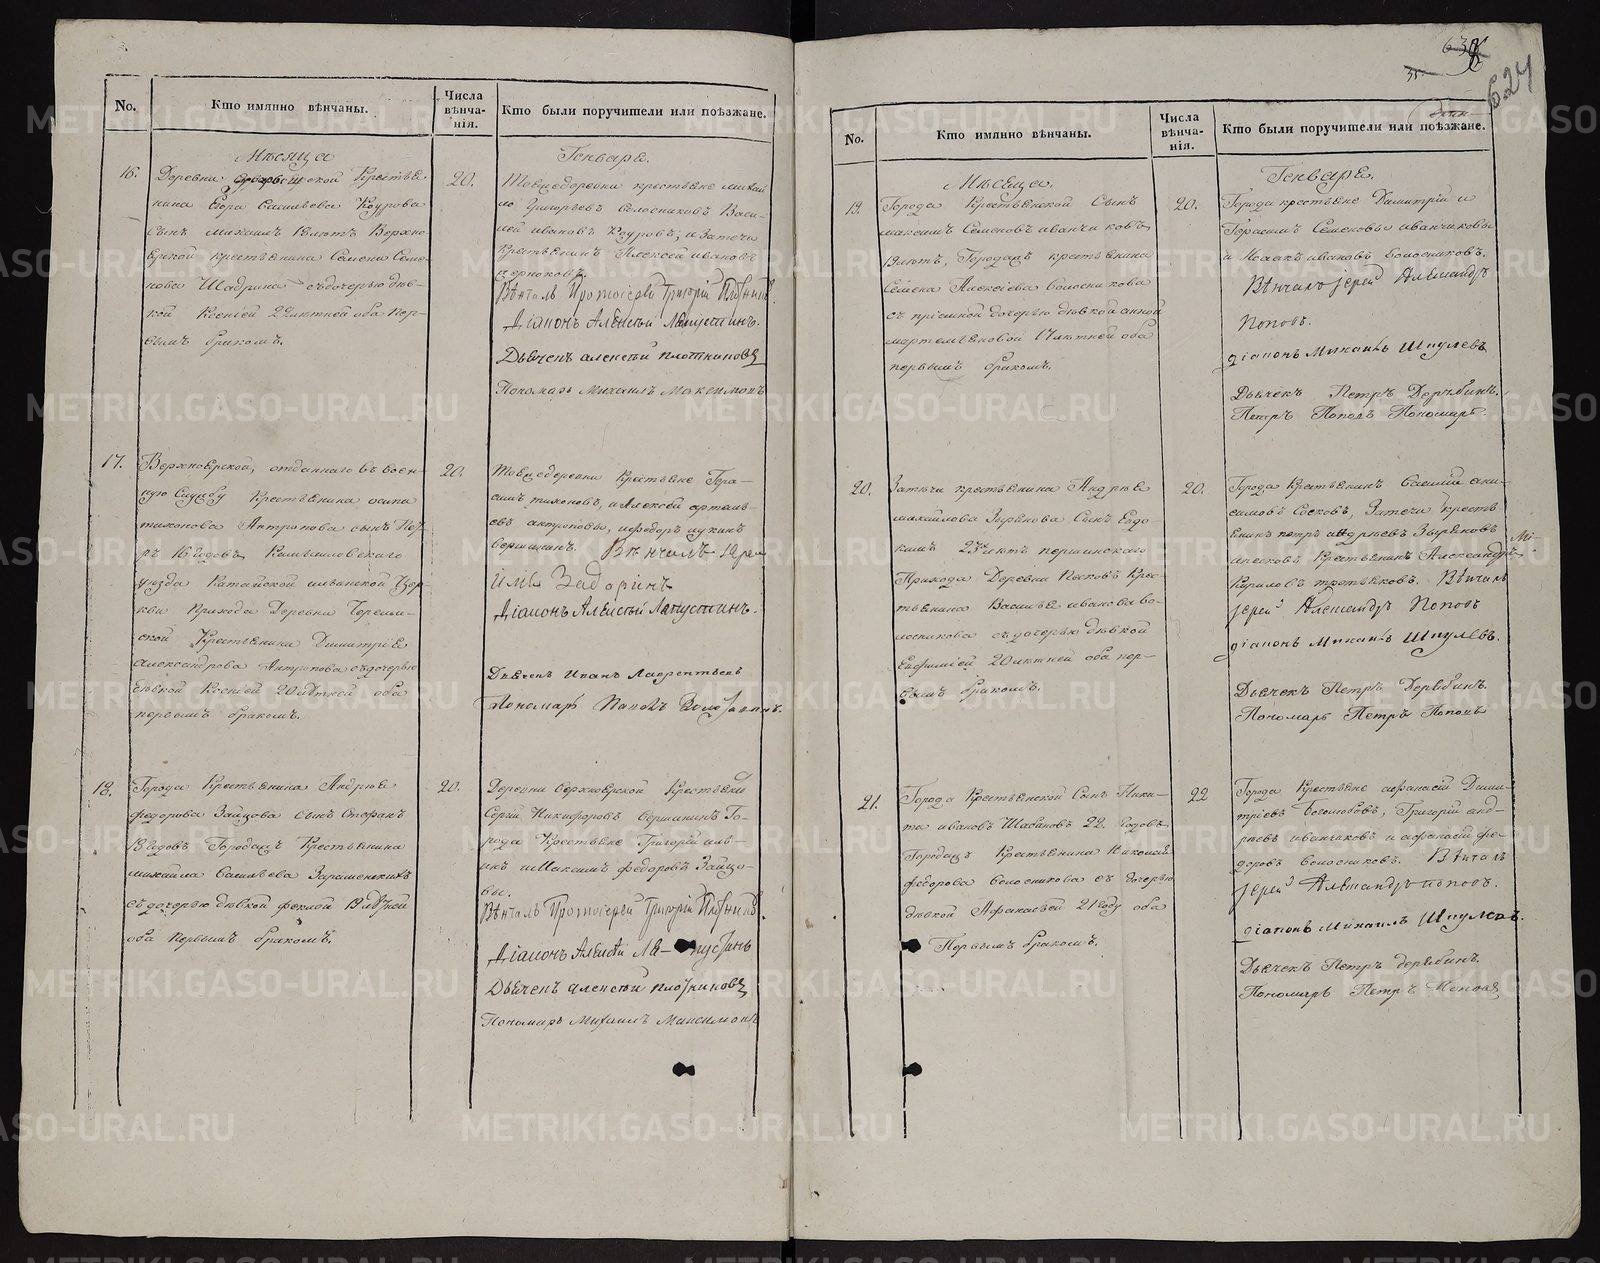 No.
Кто имянно вѣнчаны.
Числа
вѣнча-
нія.
Кто были поручители или поѣзжане.
Мѣсяца
Генваря.
16.
Деревни
ской Крестья
нина Егора Савельева Коурова
сынъ Михаилъ 18 лѣтъ Верхно-
ярской крестьянина Семена Семе-
нова Шадрина съ дочерью дѣв-
кой Ксеніей 22 лѣтней оба пер-
вымъ бракомъ.
20.
Тоежедеревни крестьяне Михаи
ло Григорьевъ Колосниковъ Васи-
лей Ивановъ Коуровъ, и Затечи
Крестьянинъ Алексей Ивановъ
Вѣнчалъ Протоіерей Григорій
Діаконъ Алексѣй Лапустинъ.
Дьячекъ Алексѣй Плотниковъ
Пономарь Михаилъ Максимовъ
17.
Верхноярской, отданнаго въ воен-
ную службу Крестьянина Осипа
Тихонова Антропова сынъ Пет-
ръ 18 годовъ Камышловскаго
уѣзда Катайской Ильинской Цер-
кви прихода Деревни Череми-
ской Крестьянина Димитрія
Александрова Антропова съ дочерью
дѣвкой Ксеніей 20 лѣтней оба
первымъ бракомъ.
20.
Тоежедеревни Крестьяне Гера-
симъ Тихоновъ, и Алексей Артемь-
евъ Антроповы, и Федоръ Лукинъ
Вершининъ. Вѣнчалъ Іерей
Илья Задоринъ
Діаконъ Алексѣй Лапустинъ.
Дьячекъ Иванъ Лаврентьевъ
Пономарь Павелъ
18.
Города Крестьянина Андрея
Федорова Зайцова сынъ Стефанъ
18 годовъ Городацъ Крестьянина
Михайла Савельева
съ дочерью дѣвкой Феклой 19 лѣтней
оба первымъ бракомъ.
20.
Деревни Верхноярской Крестьяни
Сергій Никифоровъ Вершининъ Го-
рода Крестьяне Григорій Иль-
инъ и Максимъ Федоровъ Зайцо-
вы.
Вѣнчалъ Протоіерей Григорій
Діаконъ Алексѣй Ла-пустинъ
Дьячекъ Алексѣй Плотниковъ
Пономарь Михаилъ Максимовъ
624
No.
Кто имянно вѣнчаны.
Числа
вѣнча-
нія.
Кто были поручители или поѣзжане.
Мѣсяца.
Генваря.
19.
Города Крестьянской Сынъ
Максимъ Семеновъ Иванчиковъ
19 лѣтъ, Городацъ крестьянина
Семена Алексіева Колосникова
съ пріемной дочерью дѣвкой Анной
Мартемьяновой 17 лѣтней оба
первымъ бракомъ.
20.
Города крестьяне Димитрій и
Герасимъ Семеновы Иванчиковы
и Исаакъ Ивановъ Колосниковъ.
Вѣнчалъ Іерей Александръ
Поповъ.
Діаконъ Михаилъ Шпулевъ
Дьячекъ Петръ Дерябинъ.
Петръ Поповъ Пономарь.
20.
Затечи крестьянина Андрея
Михайлова Зырянова Сынъ Евдо-
кимъ 23 лѣтъ першинскаго
Прихода Деревни Песковъ Крес-
тьянина Василья Иванова Во-
лосникова съ дочерью дѣвкой
Евфиміей 20 лѣтней оба пер-
вымъ бракомъ.
20.
Города Крестьянинъ Василій Ани-
симовъ Сосковъ, Затечи Кресть
янинъ Петръ Андреевъ Зыряновъ
и песковъ Крестьянинъ Александръ
Кириловъ Третьяковъ. Вѣнчалъ
Іерей Александръ Поповъ
Діаконъ Михаилъ Шпулевъ.
Дьячекъ Петръ Дерябинъ.
Пономарь Петръ Поповъ
21.
Города Крестьянской Сынъ Ники-
та Ивановъ Шабановъ 22 годовъ
Городацъ Крестьянина Николай
Федорова Колосникова съ дочерью
дѣвкой Афанасьей 21 году оба
Первымъ бракомъ.
22
Города Крестьяне Афанасій Дими-
тріевъ Боголюбовъ, Григорій Анд-
реевъ Иванчиковъ и Афанасій Фе-
доровъ Колосниковъ. Вѣнчалъ
Іерей Александръ Поповъ.
Діаконъ Михаилъ Шпулевъ.
Дьячекъ Петръ Дерябинъ.
Пономарь Петръ Поповъ
METRIKI.GASO-URAL.RU